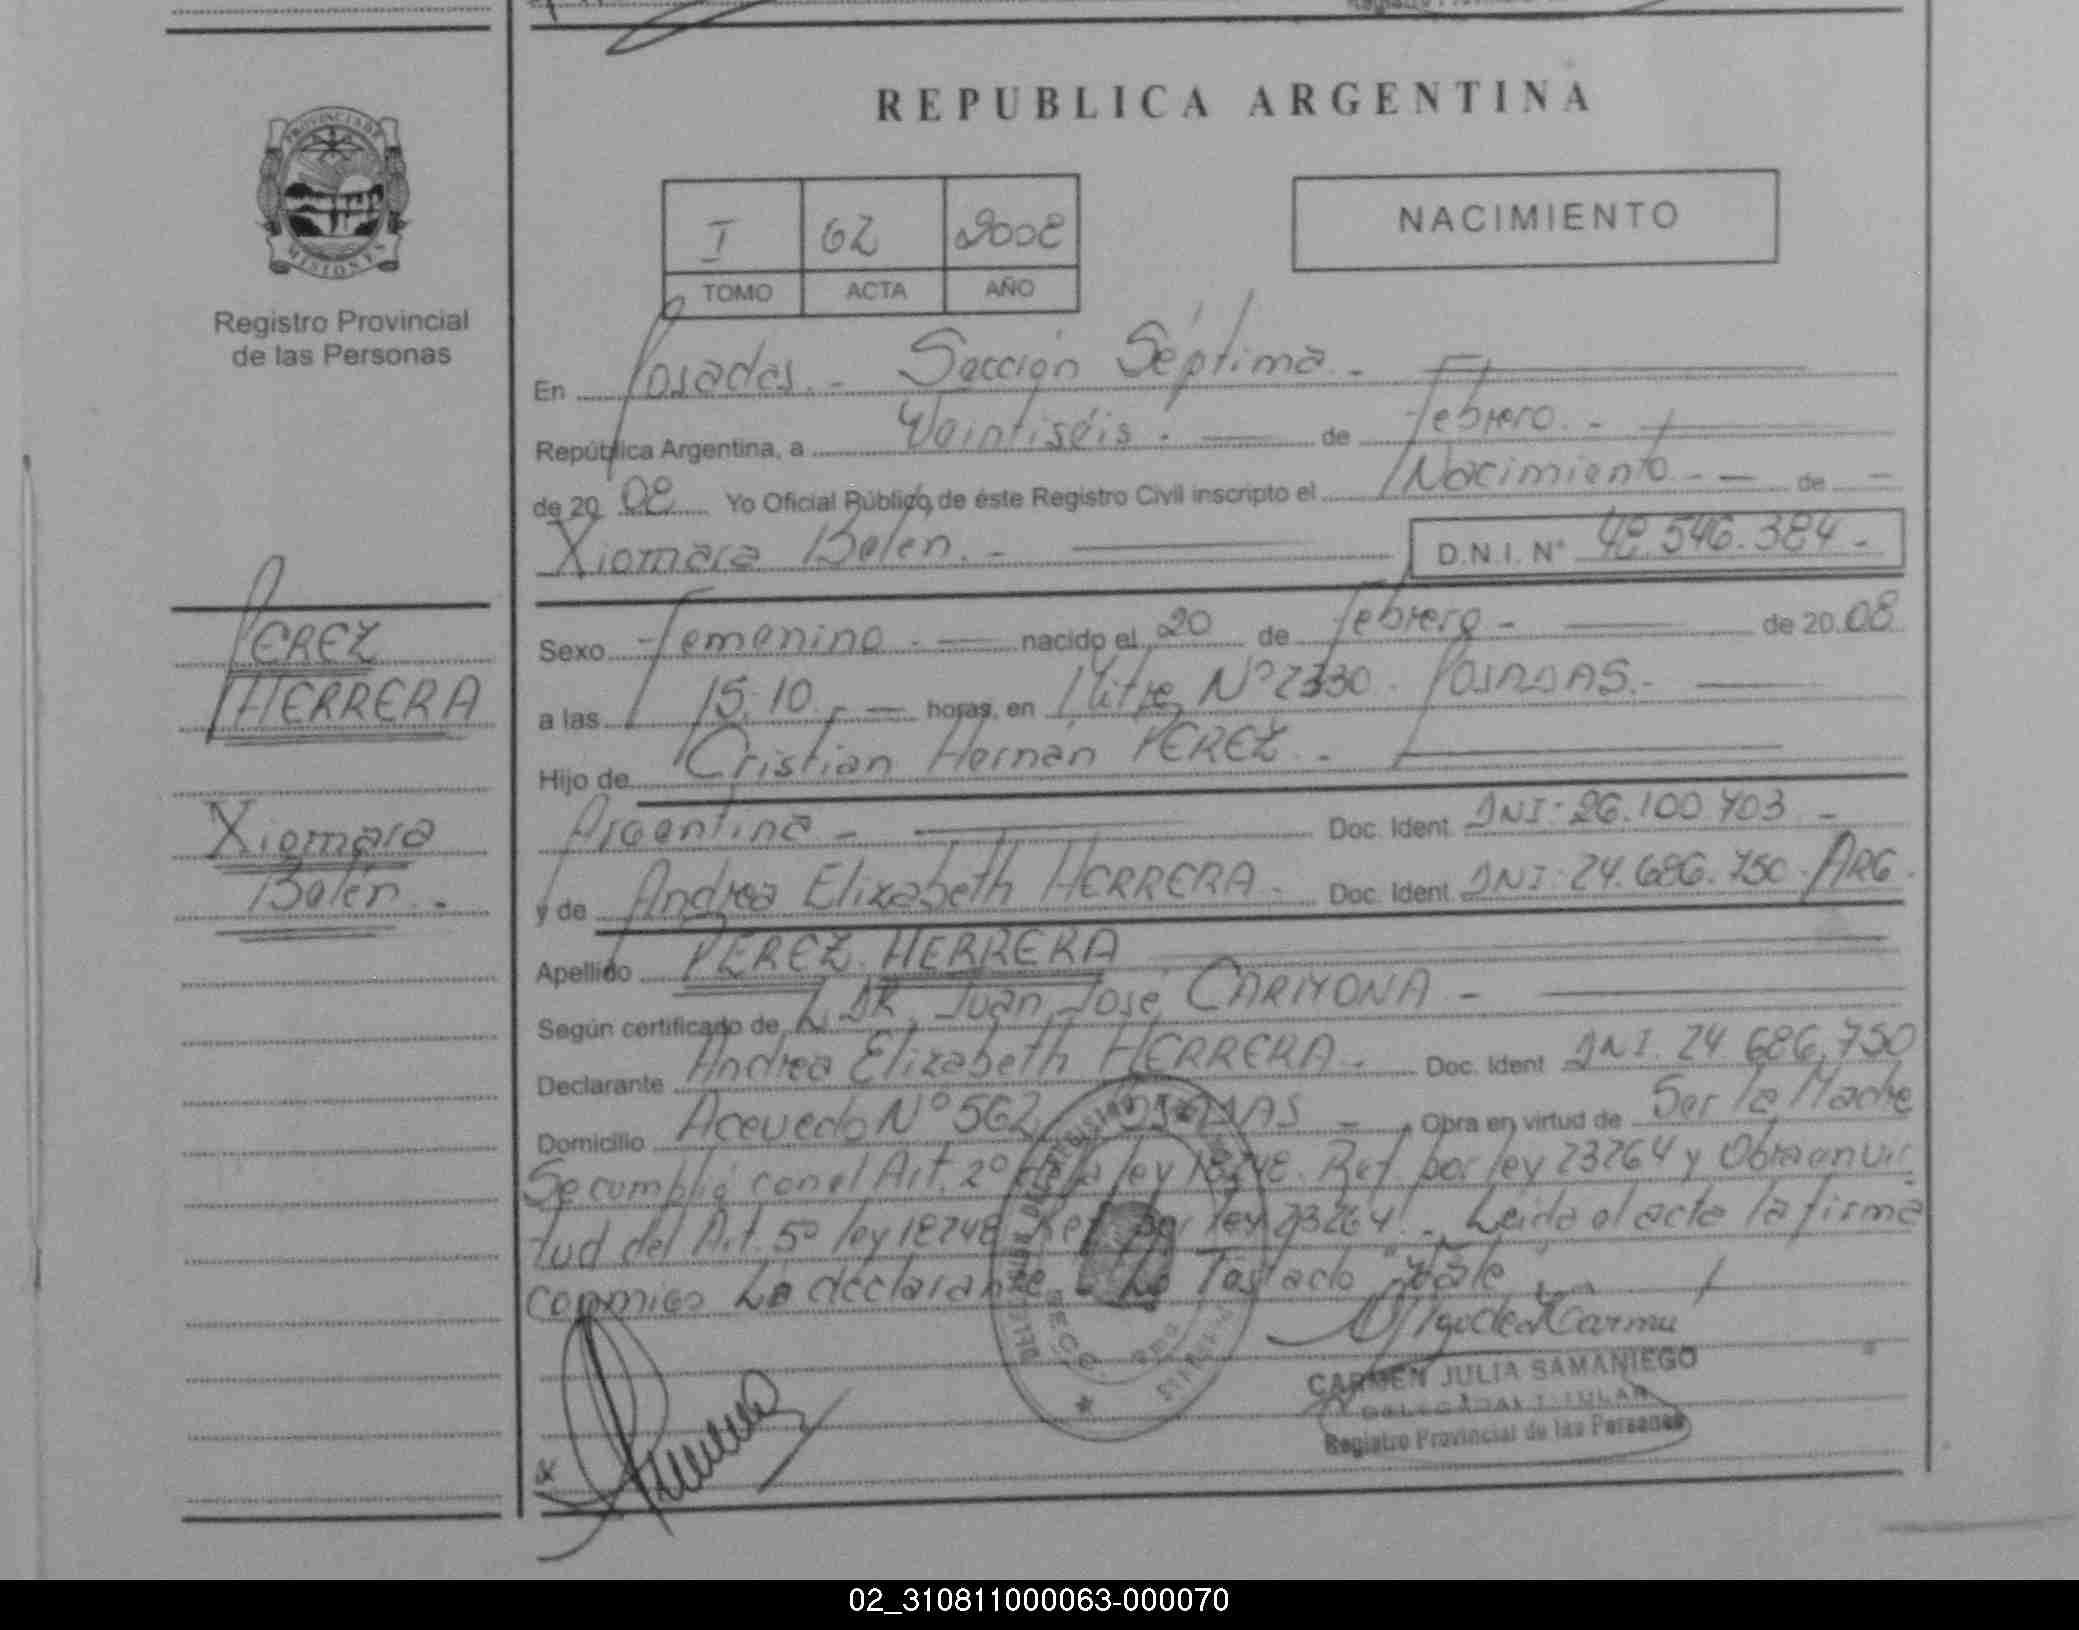 REPUBLICA ARGENTINA
PROVINCIA DE
MISIONES
Registro Provincial
de las Personas
I 62 2008
TOMO ACTA AÑO
NACIMIENTO
En Posadas.- Sección Séptima.-
República Argentina, a Veintiséis.- de febrero.-
de 20 08 Yo Oficial Público de éste Registro Civil inscripto el Nacimiento.- - de -
Xiomara Belén.- D.N.I. N° 48.546.384.-
PEREZ
HERRERA
Xiomara
Belén.-
Sexo femenino.- nacido el 20 de febrero.- de 20 08
a las 15.10.- horas, en Mitre N° 2330. POSADAS.-
Hijo de Cristian Hernán PEREZ.-
Argentina.- Doc. Ident. DNI: 26.100.703.-
y de Andrea Elizabeth HERRERA.- Doc. Ident. DNI: 24.686.750. ARG.
Apellido PEREZ HERRERA
Según certificado de DR. Juan José CARMONA.-
Declarante Andrea Elizabeth HERRERA.- Doc. Ident DNI. 24.686.750
Domicilio Acevedo N° 562 POSADAS.- Obra en virtud de Ser la Madre
Se cumplió con el Art. 2° de la ley 18248. Ref. por ley 23264 y Obra en vir
tud del Art. 5° ley 18248 Ref por ley 23264.- Leida el acta la firma
conmigo La declarante.- Lo Tastado "Vale"
CARMEN JULIA SAMANIEGO
DELEGADA TITULAR
Registro Provincial de las Personas
02_310811000063-000070